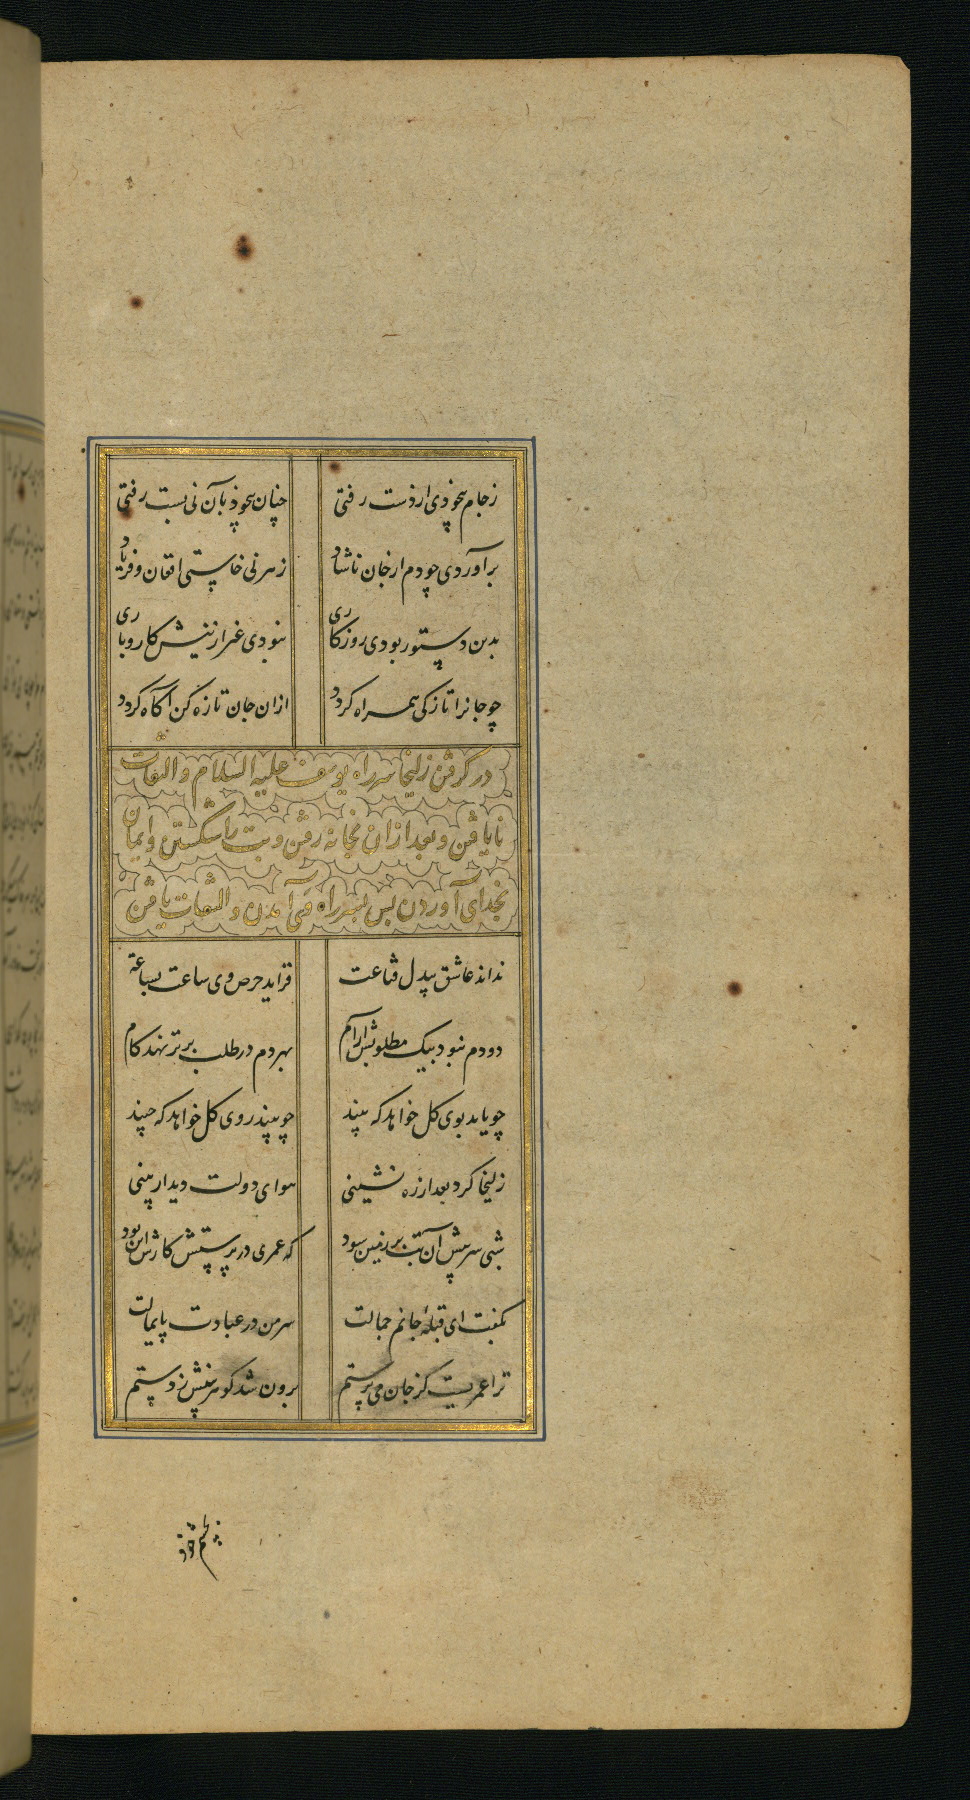 زجام بیخودی از دست رفتی چنان بیخود بآن نی بست رفتی
برآوردی چو دم از جان ناشاد زهر نی خاستی افغان و فریاد
بدین دستور بودی روزکاری نبودی غیر ازینش کار و باری
چو جانرا تازکی همراه کردد ازان جان تازه کن آکاه کردد
در کرفتن زلیخا سر راه یوسف علیه السلام و التفات
نایافتن و بعد ازان بخانه رفتن و بت را شکستن و ایمان
بخدای آوردن پس بسر راه وی آمدن و التفات یافتن
نداند عاشق بیدل قناعت فزاید حرص وی ساعت بساعت
دو دم نبود بیک مطلوبش آرام بهر دم در طلب برتر نهد کام
چو یابد بوی کل خواهد که بیند چو بیند روی کل خواهد که چیند
زلیخا کرد بعد از ره نشینی هوای دولت دیدار بینی
شبی سر پیش آن بت بر زمین سود که عمری در پرستش کارش این بود
بکفت ای قبلهٔ جانم جمالت سر من در عبادت پایمالت
ترا عمریست کز جان می پرستم برون شد کوهر بینش ز دستم
بچشم خود